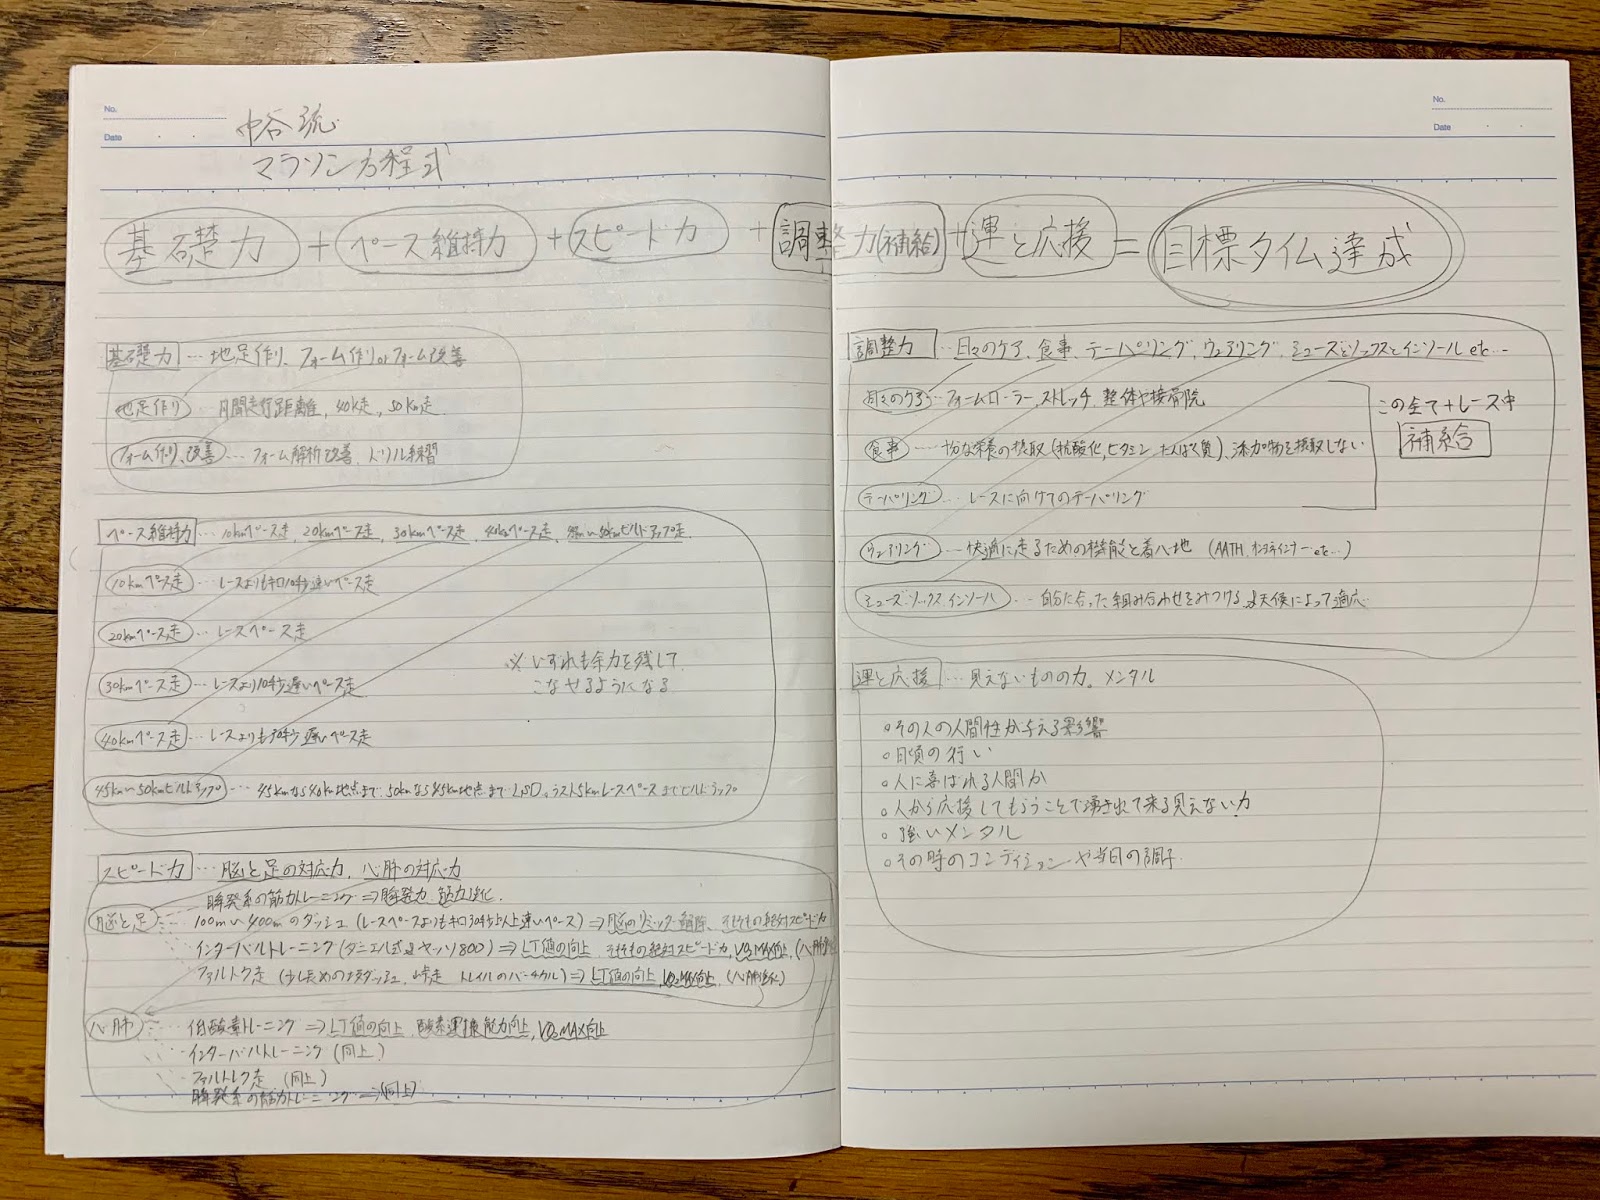 No.
Date
中谷流
マラソン方程式
基礎力 + ペース維持力 + スピード力 + 調整力(補給) + 運と応援 = 目標タイム達成
基礎力 … 地足作り、フォーム作りorフォーム改善
地足作り … 月間走行距離、40k走、50km走
フォーム作り、改善 … フォーム解析改善、ドリル練習
ペース維持力 … 10kmペース走、20kmペース走、30kmペース走、40kmペース走、45km〜50kmビルドアップ走
10kmペース走 … レースよりもキロ10秒速いペース走
20kmペース走 … レースペース走
30kmペース走 … レースより10秒遅いペース走
※いずれも余力を残して
こなせるようになる
40kmペース走 … レースよりも 遅いペース走
45km〜50kmビルドアップ … 45kmなら40km地点まで、50kmなら45km地点までLSD。ラスト5kmレースペースまでビルドアップ
スピード力 … 脳と足の対応力、心肺の対応力
瞬発系の筋力トレーニング ⇒ 瞬発力、筋力強化
脳と足 … 100m〜400mのダッシュ(レースペースよりもキロ30秒以上速いペース) ⇒ 脳のリミッター解除、そもそもの絶対スピード力
インターバルトレーニング(ダニエル式&ヤッソ800) ⇒ LT値の向上、そもそもの絶対スピード力、VO2MAX向上、(心肺
ファルトレク走(少し長めの坂ダッシュ、峠走、トレイルのバーチカル) ⇒ LT値の向上、VO2MAX向上、(心肺強化)
心肺 … 低酸素トレーニング ⇒ LT値の向上、酸素運搬能力向上、VO2MAX向上
インターバルトレーニング(同上)
ファルトレク走(同上)
瞬発系の筋力トレーニング ⇒ (同上)
No.
Date
調整力 … 日々のケア、食事、テーパリング、ウェアリング、シューズとソックスとインソールetc…
日々のケア … フォームローラー、ストレッチ、整体や接骨院
この全て+レース中
補給
食事 … 十分な栄養の摂取(抗酸化、ビタミン、たんぱく質)、添加物を摂取しない
テーパリング … レースに向けてのテーパリング
ウェアリング … 快適に走るための機能と着心地 (AATH, インナーetc…)
シューズ・ソックス・インソール … 自分に合った組み合わせをみつける&天候によって適応
運と応援 … 見えないものの力。メンタル
○その人の人間性が与える影響
○日頃の行い
○人に喜ばれる人間か
○人から応援してもらうことで湧き出て来る見えない力
○強いメンタル
○その時のコンディションや当日の調子